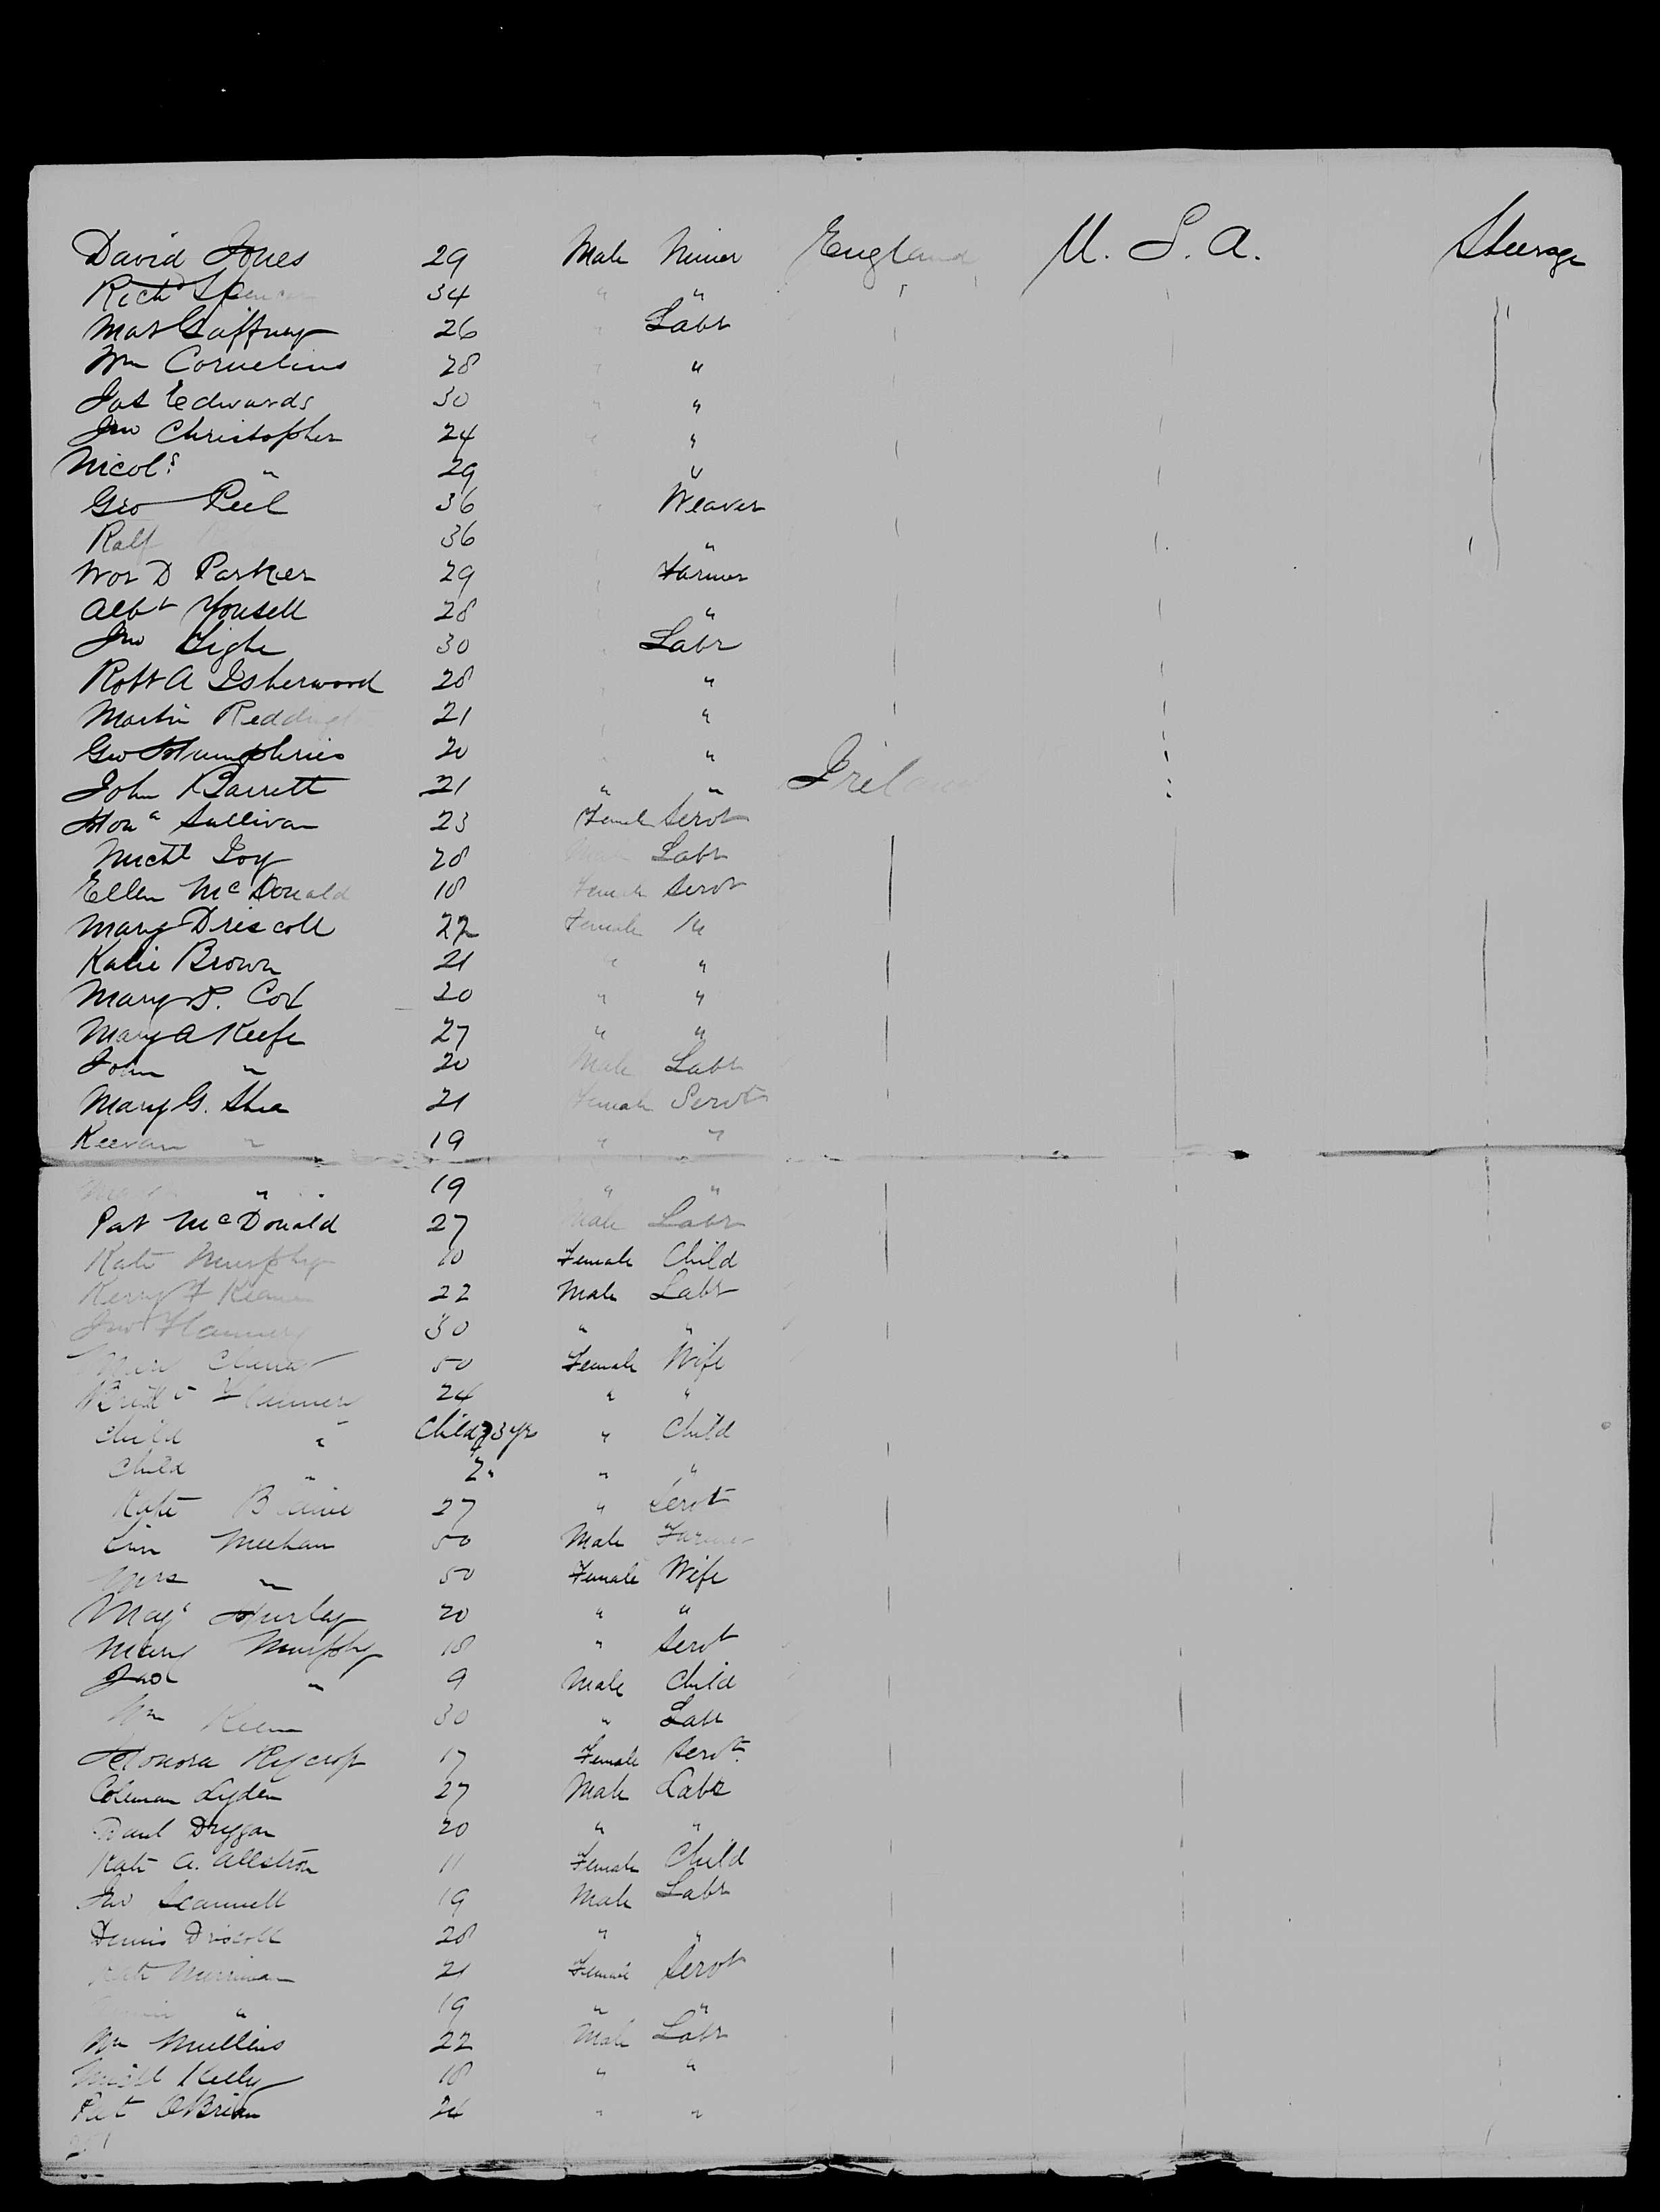 David Jones 29 Male Miner England U. S. A. Steerage
Richd Spencer 34 " "
Mat Gaffney 26 " Labr
Wm Cornelius 28 " "
Jas Edwards 30 " "
Jno Christopher 24 " "
Nicols " 29 "
Geo Peel 36 " Weaver
Ralf 36 "
D Parker 29 Farmer
Albt Yousell 28 "
Jno Tighe 30 Labr
Robt A Isherwood 28 "
Martin Reddingt 21 "
Geo Humphries 20 "
John Barrett 21 " " Ireland
Hona Sullivan 23 Female Servt
Michl Joy 28 Male Labr
Ellen McDonald 18 Female Servt
Mary Driscoll 22 Female "
Katie Brown 21 " "
Mary Cox 20 " "
Mary A Keefe 27 " "
John " 20 Male Labr
Mary G. Shea 21 Female Servt
Keevan " 19 " "
" 19 " "
Pat McDonald 27 Male Labr
Kate Murphy 10 Female Child
F 22 Male Labr
Jno Flannery 30 " "
50 Female Wife
Flannery 24 " "
Child " Child 3 yr " Child
Child " 2 " " "
Kate 27 " Servt
Meehan 50 Male Farmer
Mrs " 50 Female Wife
Hurley 20 " "
Mary Murphy 18 " Servt
" 9 Male Child
Wm 30 " Labr
Honora Rycroft 17 Female Servt
Coleman Lyden 27 Male Labr
20 " "
Kate A. Allstron 11 Female Child
Jno Scannell 19 Male Labr
Dennis Driscoll 28 " "
Kate 21 Female Servt
" 19 " "
Wm Mullins 22 Male Labr
Michl Kelly 18 " "
Pat OBrien 24 " "